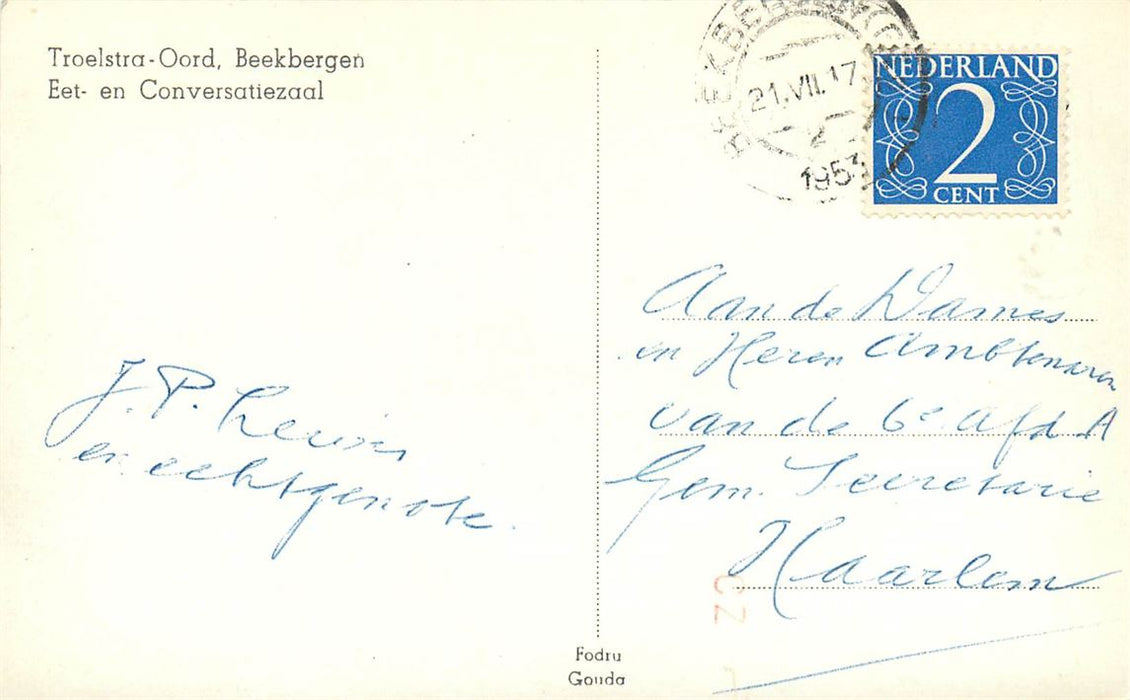 Troelstra-Oord, Beekbergen
Eet- en Conversatiezaal
BEEKBERGEN
21.VII.17
2
1953
NEDERLAND
2
CENT
Aan de Dames
en Heren Ambtenaren
van de 6e Afd. A
Gem. Secretarie
Haarlem
J. P. Lewin
en echtgenote.
CZ
Fodru
Gouda